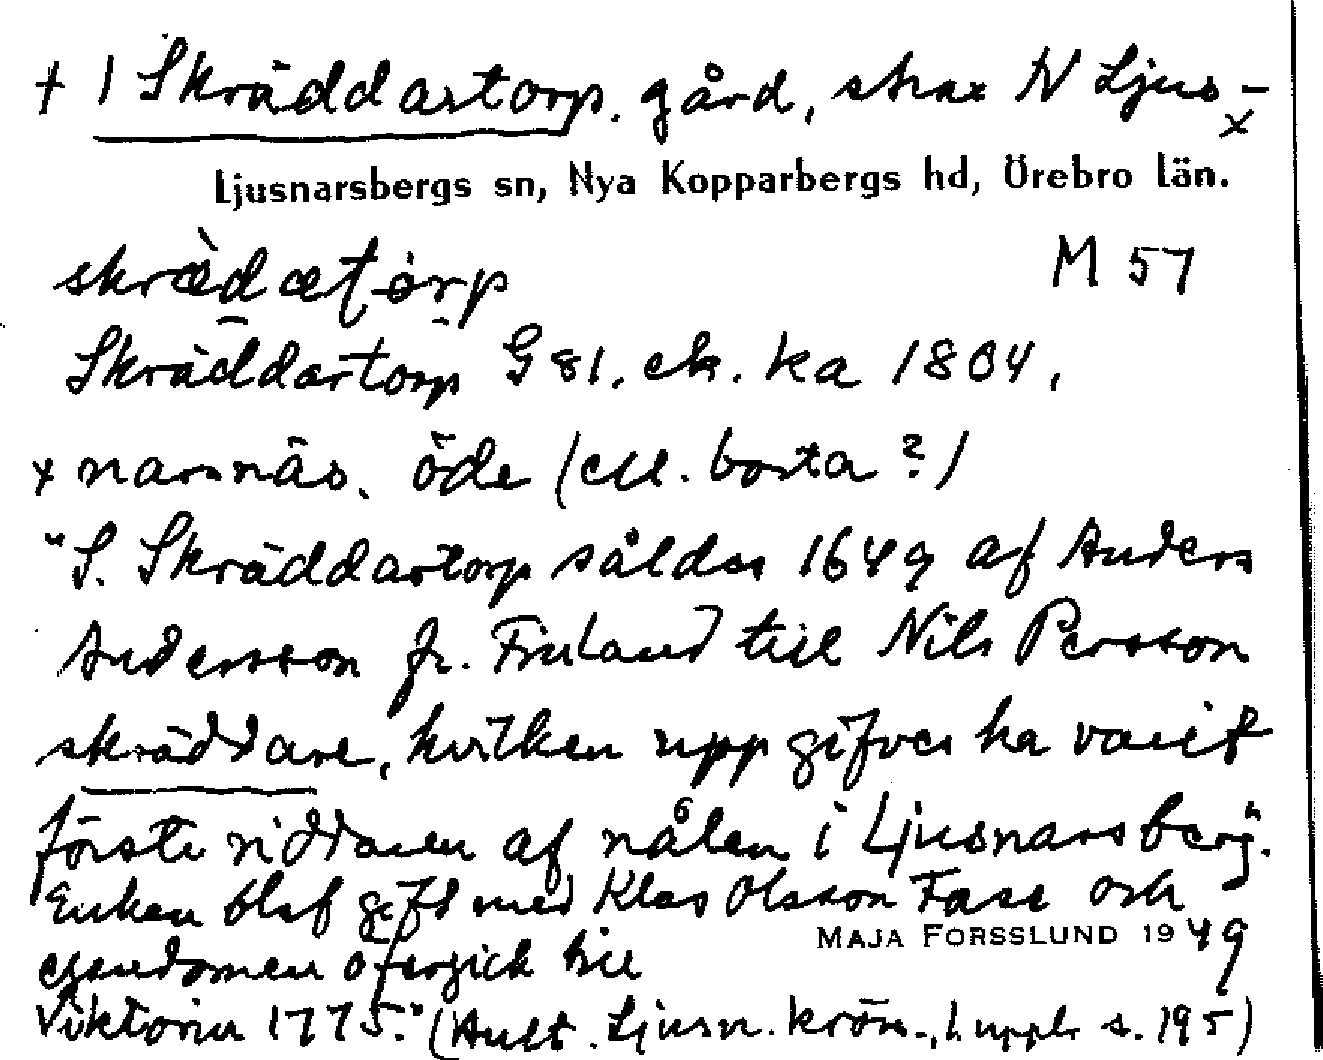 + 1 Skräddartorp. gård, strax N Ljus-
x
Ljusnarsbergs sn, Nya Kopparbergs hd, Örebro län.
skrædætorp M 57
Skräddartorp G 81. ek. ka 1804,
x narsnäs. öde (ell. borta?)
"S. Skräddartorp såldes 1649 af Anders
Andersson fr. Finland till Nils Persson
skräddare, hvilken uppgifves ha varit
förste riddaren af nålen i Ljusnarsberg.
Enkan blef gift med Klas Olsson Fase och
MAJA FORSSLUND 1949
egendomen öfvergick till
Viktorin 1775." (Hult. Ljusn. krön., 1. uppl. s. 195)